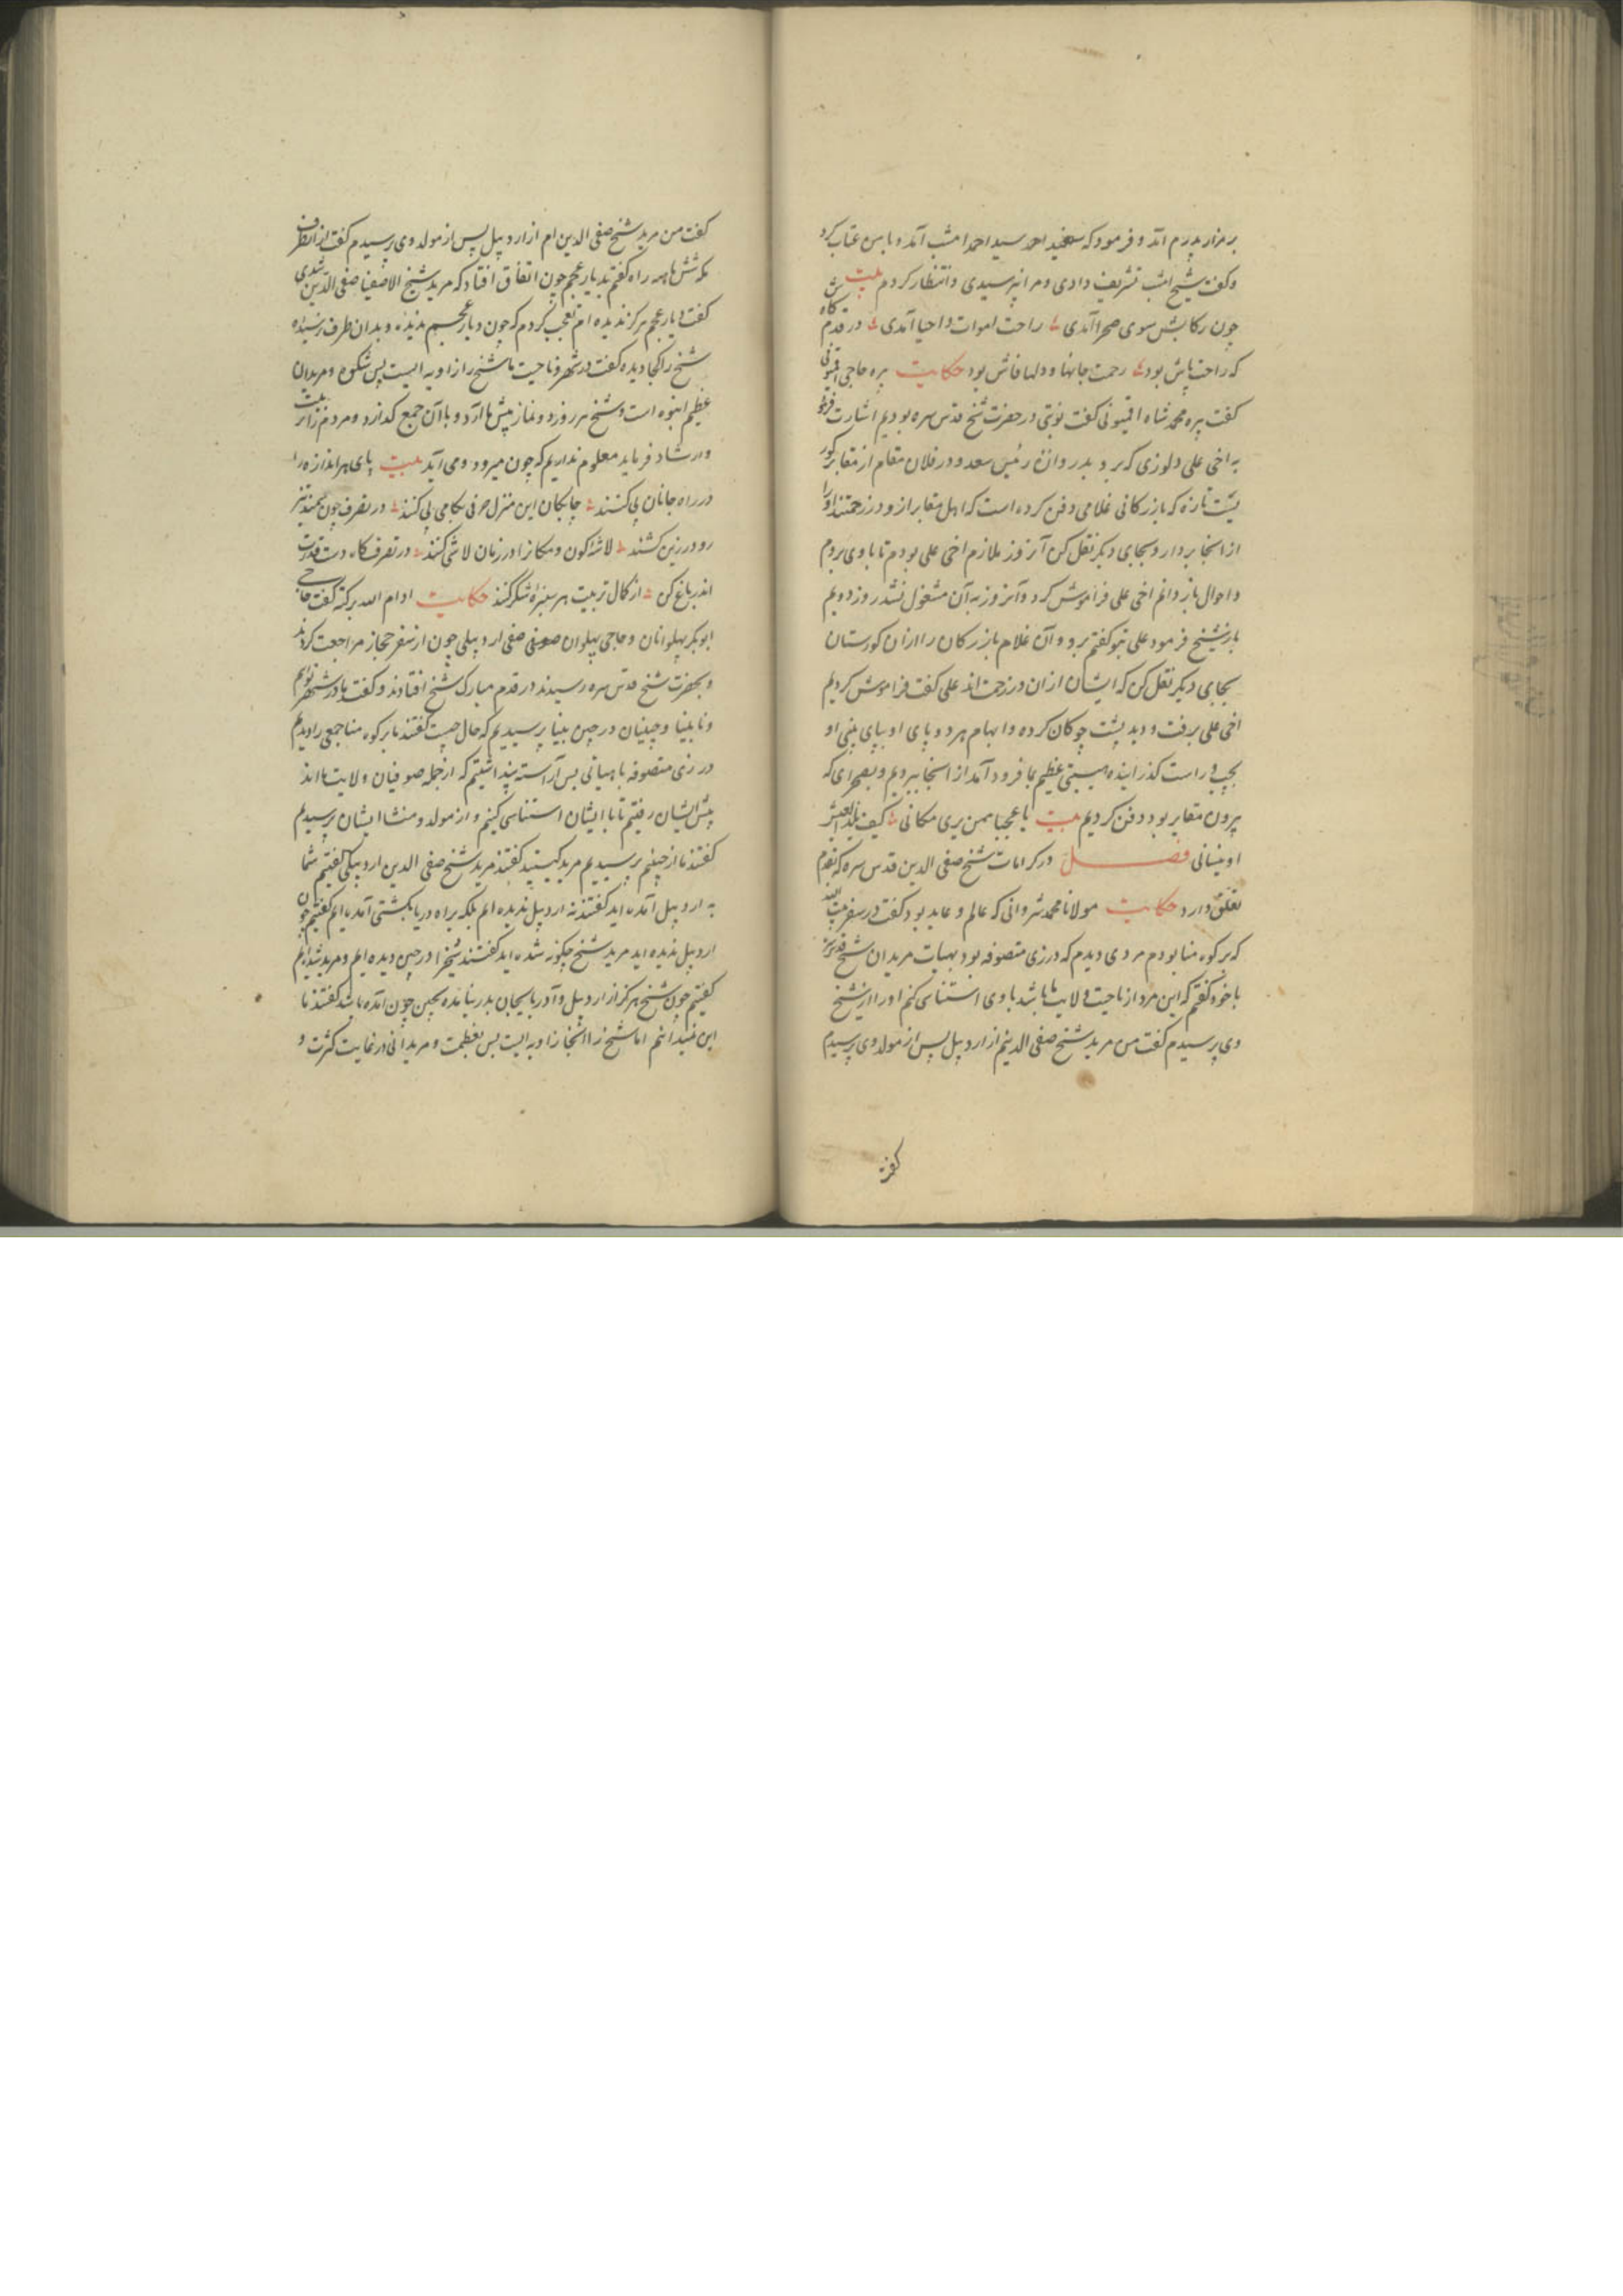 بر مزار پدرم آمد و فرمود که سید احمد سید احمد امشب آمد و با من عتاب کرد
و گفت شیخ امشب تشریف دادی و مرا نپرسیدی و انتظار کردم بیت
چون رکابش سوی صحرا آمدی راحت اموات و احیا آمدی در قدم گاهش
که راحت پاش بود رحمت جانها و دلها فاش بود حکایت پیره حاجی
گفت پیره محمد شاه گفت نوبتی در حضرت شیخ قدس سره بودیم اشارت فرمود
به اخی علی دلوزی که برو بدروازه رئیس سعد و در فلان مقام از مقابر گور
تازه که بازرکانی غلامی دفن کرده است که اهل مقابر ازو در زحمتند او را
از اینجا بردار و بجای دیگر نقل کن آنروز ملازم اخی علی بودم تا با وی بروم
و احوال باز دانم اخی علی فراموش کرد و آنروز به آن مشغول نشد روز دویم
باز شیخ فرمود علی بتو گفتم برو و آن غلام بازرکان را از ان کورستان
بجای دیگر نقل کن که ایشان ازان در زحمت اند علی گفت فراموش کردیم
اخی علی برفت و دید پشت چوکان کرده و ابهام هر دو پای او به پای بینی او
بچپ و راست گذرانیده هیبتی عظیم بما فرود آمد از اینجا ببردیم و بصحرای که
بیرون مقابر بود دفن کردیم بیت یا عجبا همن یری مکانی کیف
اوینسانی فصل در کرامات شیخ صفی الدین قدس سره که
تعلق دارد حکایت مولانا محمد شروانی که عالم و عابد بود گفت در سفر بیت الله
که بر کوه منا بودم مردی دیدم که در زی متصوفه بود بهیات مریدان شیخ قدس سره
با خود گفتم که این مرد از ناحیت ولایت ما باشد با وی استناسی کنم او را از شیخ
وی پرسیدم گفت من مرید شیخ صفی الدینم از اردبیل پس از مولد وی پرسیدم
گفت
گفت من مرید شیخ صفی الدین ام از اردبیل پس از مولد وی پرسیدم گفت از انطرف
مکه شش ماهه راه گفتم بدیار عجم چون اتفاق افتاد که مرید شیخ الاصفیا صفی الدین شدی
گفت دیار عجم هرگز ندیده ام تعجب کردم که چون دیار عجم ندیده و بدان طرف نرسیده
شیخ را کجا دیده گفت در شهر و ناحیت ما شیخ را زاویه ایست پس شکوه و مریدان
عظیم انبوه است و شیخ هر روز دو نماز پیش ما آرد و با آن جمع گذارد و مردم را تربیت
و ارشاد فرماید معلوم نداریم که چون میرود و می آید بیت پای هر اندازه را
در راه جانان پی کنند چابکان این منزل حرفی بگامی پی کنند در تصرف چون سمند تیز
رو در زین کشند لاشه کون و مکانرا در زمان لاشی کنند در تصرف گاه دست قدرت
اندر باغ کن از کمال تربیت هر سبزه شکر کنند حکایت ادام الله برکته گفت حاجی
ابوبکر پهلوانان و حاجی پهلوان صوفی صفی اردبیلی چون از سفر حجاز مراجعت کردند
و بحضرت شیخ قدس سره رسیدند در قدم مبارک شیخ افتادند و گفتند ما در شهر توایم
و نابینا و چینیان در چین بینا پرسیدیم که حال چیست گفتند ما بر کوه منا جمعی را دیدیم
در زی متصوفه با هیاتی بس آراسته پنداشتیم که از جمله صوفیان ولایت ما اند
پیش ایشان رفتیم تا با ایشان استناسی کنیم و از مولد و منشا ایشان پرسیدیم
گفتند ما از چینیم پرسیدیم مرید کیستید گفتند مرید شیخ صفی الدین اردبیلی گفتیم شما
به اردبیل آمده اید گفتند نه اردبیل ندیده ایم بلکه براه دریا بکشتی آمده ایم گفتیم چون
اردبیل ندیده اید مرید شیخ چگونه شده اید گفتند شیخ را در چین دیده ایم و مرید شده ایم
گفتیم چون شیخ هرگز از اردبیل و آدربایجان بدر نیامده بچین چون آمده باشد گفتند ما
این نمیدانیم اما شیخ را اینجا زاویه ایست بس بعظمت و مریدانی در غایت کثرت و